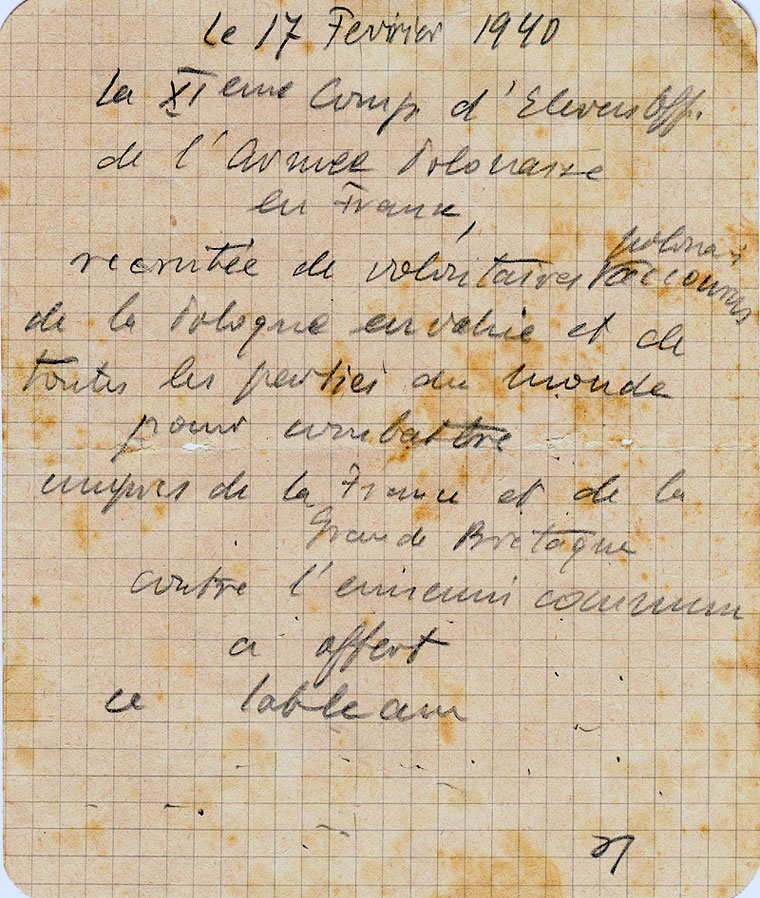 Le 17 Fevrier 1940
La XIeme Comp d'Eleves Off.
de l'Armee Polonaise
en France,
recrutée de volontaires polonais accourus
de la Pologne envahie et de
toutes les parties du monde
pour combattre
aupres de la France et de la
Grande Bretagne
contre l'ennemi commun
a offert
ce tableau